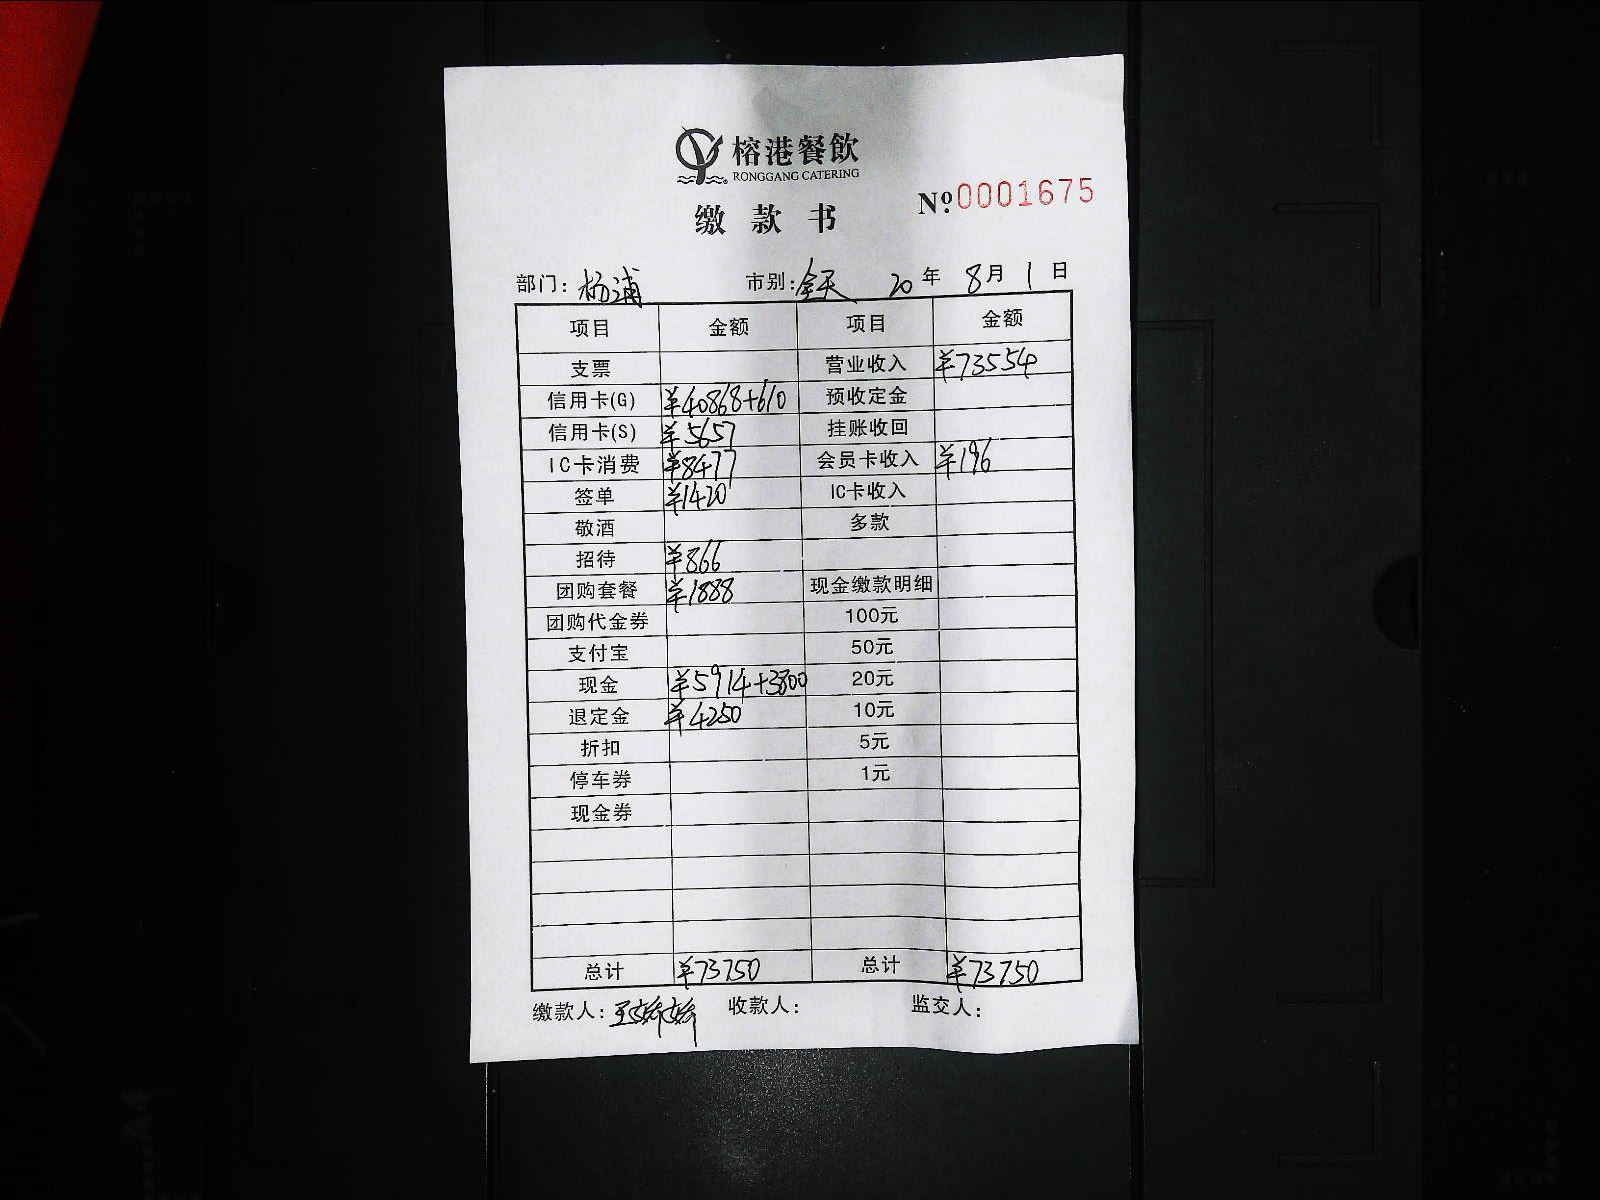 榕港餐飲
RONGGANG CATERING
缴款书
№0001675
部门：杨浦 市别：全天 20年8月1日
项目 金额 项目 金额
支票 营业收入 ¥73554
信用卡(G) ¥40868+610 预收定金
信用卡(S) ¥5657 挂账收回
IC卡消费 ¥8477 会员卡收入 ¥196
签单 ¥1420 IC卡收入
敬酒 多款
招待 ¥866
团购套餐 ¥1888 现金缴款明细
团购代金券 100元
支付宝 50元
现金 ¥5914+3800 20元
退定金 ¥4250 10元
折扣 5元
停车券 1元
现金券
总计 ¥73750 总计 ¥73750
缴款人：王娇娇 收款人： 监交人：